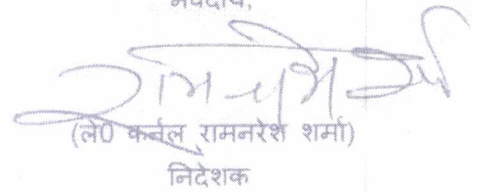 भवदीय,
(ले0 कर्नल रामनरेश शर्मा)
निदेशक